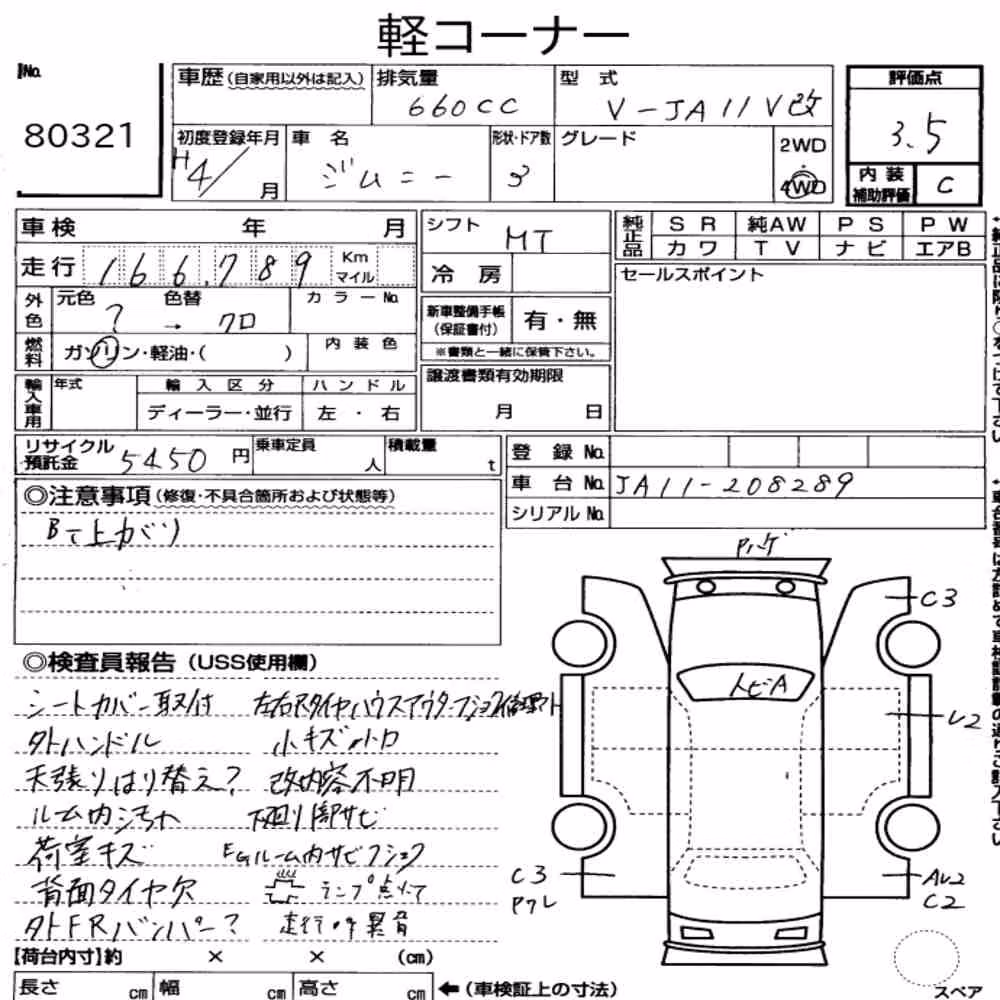 軽コーナー
No. 80321
車歴(自家用以外は記入) 排気量 660CC 型 式 V-JA11V改
初度登録年月 H4/ 月 車 名 ジムニー 形状・ドア数 3 グレード 2WD 4WD
評価点 3.5
内装補助評価 C
車検 年 月
走行 166,789 Km マイル
外色 元色 ? 色替 → クロ カラーNo.
燃料 ガソリン・軽油・( ) 内装色
輸入車用 年式 輸入区分 ハンドル
ディーラー・並行 左・右
シフト MT
冷房
新車整備手帳(保証書付) 有・無
※書類と一緒に保管下さい。
譲渡書類有効期限
月 日
純正品 SR 純AW PS PW
カワ TV ナビ エアB
セールスポイント
リサイクル預託金 5450円 乗車定員 人 積載量 t
登録 No.
車台 No. JA11-208289
シリアル No.
◎注意事項(修復・不具合箇所および状態等)
Bて上がり
◎検査員報告(USS使用欄)
シートカバー取付
外ハンドル 小キズ小凹
天張りはり替え? 改内容不明
ルーム内汚れ 下廻り部サビ
荷室キズ EGルーム内サビフショク
背面タイヤ欠 ランプ点灯
外FRバンパー? 走行時異音
【荷台内寸】約 × × (cm)
長さ cm 幅 cm 高さ cm ←(車検証上の寸法)
Pハゲ
C3
トビA
U2
C3
Pワレ
AU2
C2
スペア